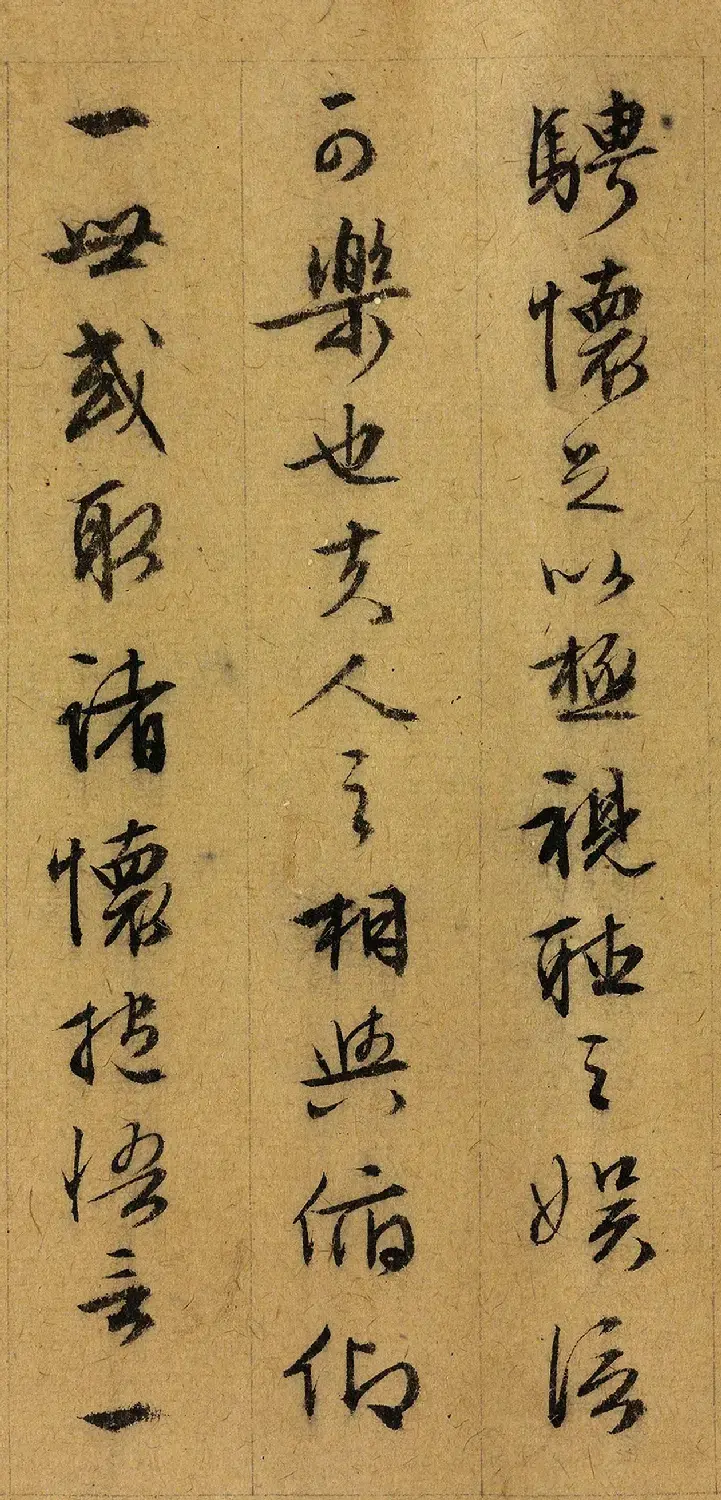 騁懷足以極視聽之娛信
可樂也夫人之相與俯仰
一世或取諸懷抱悟言一